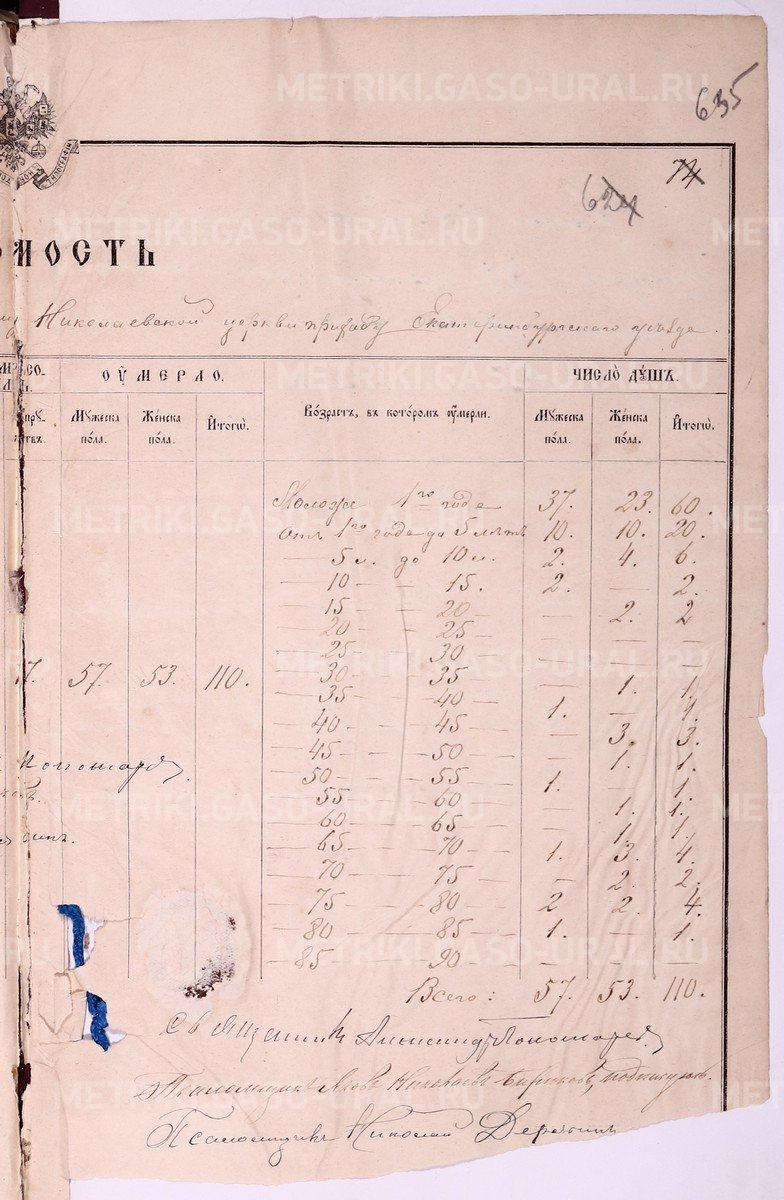 635
74
624
МОСТЬ
Николаевской церкви приходу Екатеринбургскаго уѣзда.
ОУМЕРЛО.
ЧИСЛО ДУШЪ.
Мужеска пола.
Женска пола.
Итогѡ.
Возрастъ, въ которомъ оумерли.
Мужеска пола.
Женска пола.
Итогѡ.
Моложе 1го года 37. 23. 60.
Отъ 1го года до 5 лѣтъ 10. 10. 20.
5 л. до 10 л. 2. 4. 6.
— 10 — — 15. 2. — 2.
— 15 — — 20 — — 2. 2
— 20 — — 25 — — — —
— 25 — — 30 — — — —
57. 53. 110.
— 30 — — 35 — — 1. 1.
— 35 — — 40 — 1. — 1.
— 40 — — 45 — — 3. 3.
— 45 — — 50 — — 1. 1.
— 50 — — 55 — 1. — 1.
— 55 — — 60 — — 1. 1.
— 60 — — 65 — — 1. 1.
— 65 — — 70 — 1. 3. 4.
— 70 — — 75 — — 2. 2.
— 75 — — 80 — 2 2. 4.
— 80 — — 85 — 1. — 1.
— 85 — — 90 — — — —
Всего: 57. 53. 110.
Священникъ Александръ Пономаревъ
Псаломщикъ Яковъ
Псаломщикъ Николай
METRIKI.GASO-URAL.RU